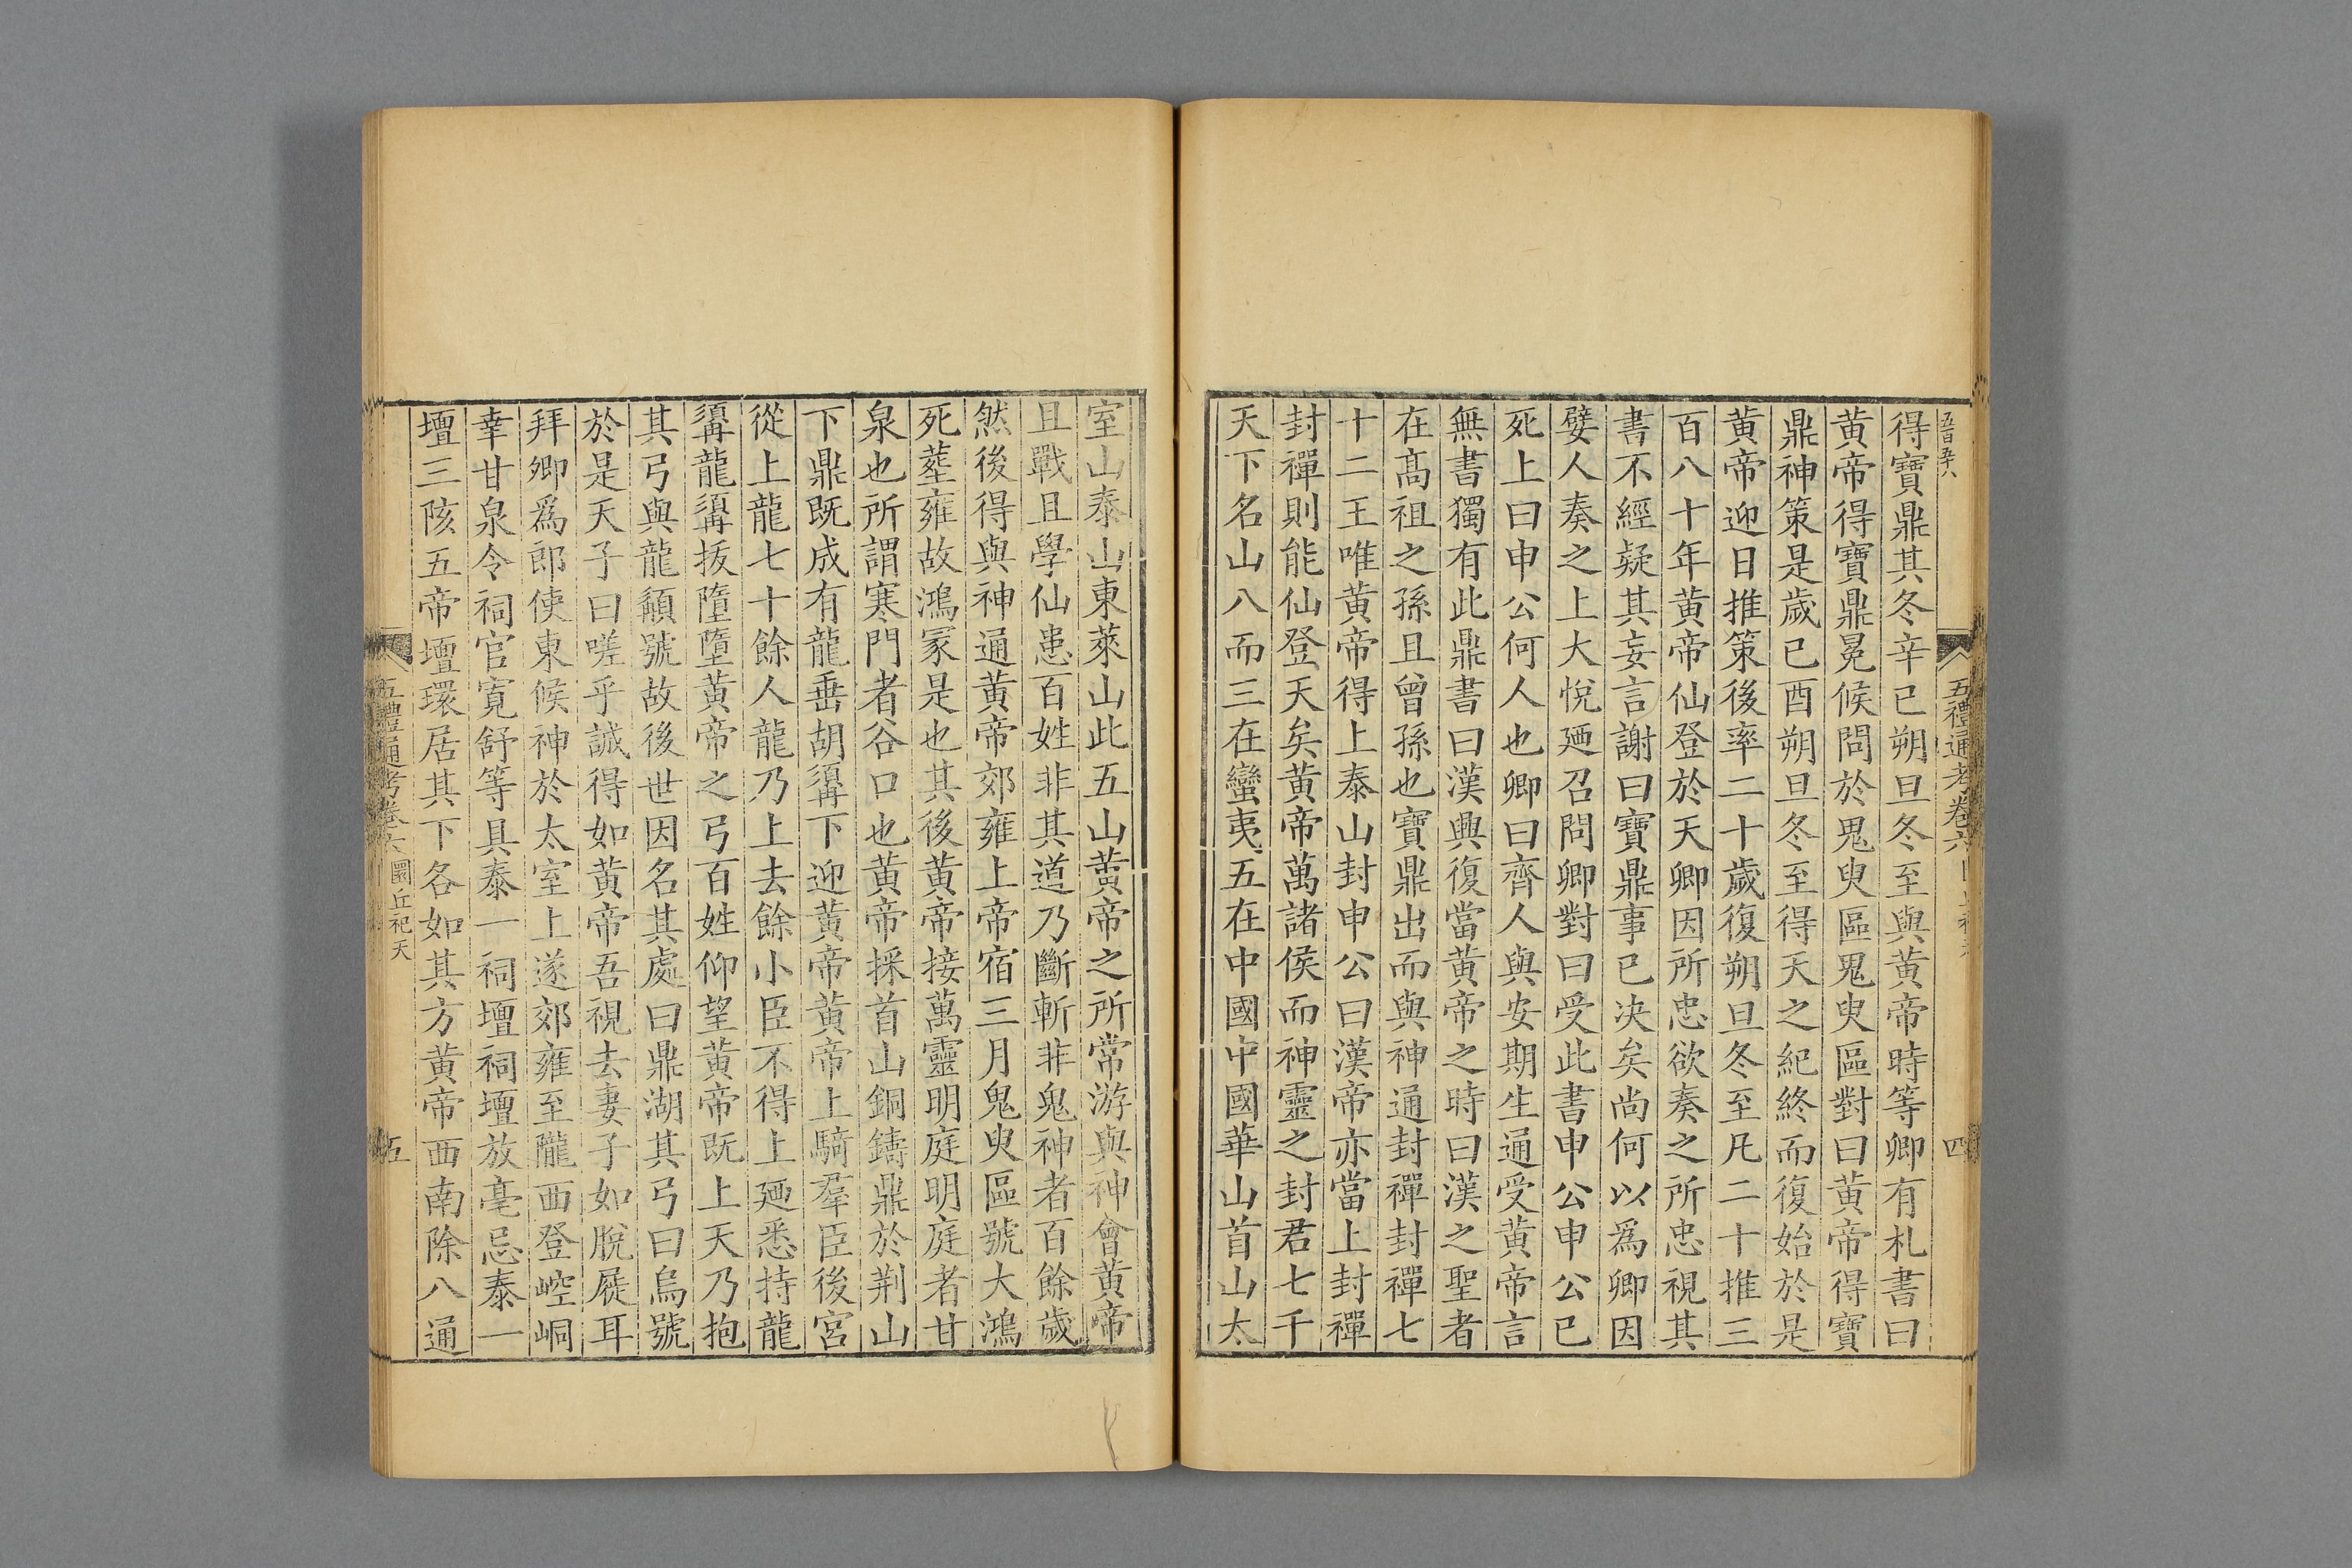 五百五十八
五禮通考卷六
四
得寶鼎其冬辛已朔旦冬至與黄帝時等卿有札書曰
黄帝得寶鼎冕候問於鬼臾區鬼臾區對曰黄帝得寶
鼎神策是歲已酉朔旦冬至得天之紀終而復始於是
黄帝迎日推策後率二十歲復朔旦冬至凡二十推三
百八十年黄帝仙登於天卿因所忠欲奏之所忠視其
書不經疑其妄言謝曰寶鼎事已决矣尚何以爲卿因
嬖人奏之上大悅廼召問卿對曰受此書申公申公已
死上曰申公何人也卿曰齊人與安期生通受黄帝言
無書獨有此鼎書曰漢興復當黄帝之時曰漢之聖者
在髙祖之孫且曾孫也寶鼎出而與神通封禪封禪七
十二王唯黄帝得上泰山封申公曰漢帝亦當上封禪
封禪則能仙登天矣黄帝萬諸侯而神靈之封君七千
天下名山八而三在蠻夷五在中國中國華山首山太
室山泰山東萊山此五山黄帝之所常游與神會黄帝
且戰且學仙患百姓非其道乃斷斬非鬼神者百餘歲
然後得與神通黄帝郊雍上帝宿三月鬼臾區號大鴻
死塟雍故鴻冢是也其後黄帝接萬靈明庭明庭者甘
泉也所謂寒門者谷口也黄帝採首山銅鑄鼎於荆山
下鼎既成有龍垂胡䰅下迎黄帝黄帝上騎羣臣後宮
從上龍七十餘人龍乃上去餘小臣不得上廼悉持龍
䰅龍䰅拔墮墮黄帝之弓百姓仰望黄帝既上天乃抱
其弓與龍䫇號故後世因名其處曰鼎湖其弓曰烏號
於是天子曰嗟乎誠得如黄帝吾視去妻子如脫屣耳
拜卿爲郎使東候神於太室上遂郊雍至隴西登崆峒
幸甘泉令祠官寬舒等具泰一祠壇祠壇放亳忌泰一
壇三陔五帝壇環居其下各如其方黄帝西南除八通
五禮通考卷六 圜丘祀天
五